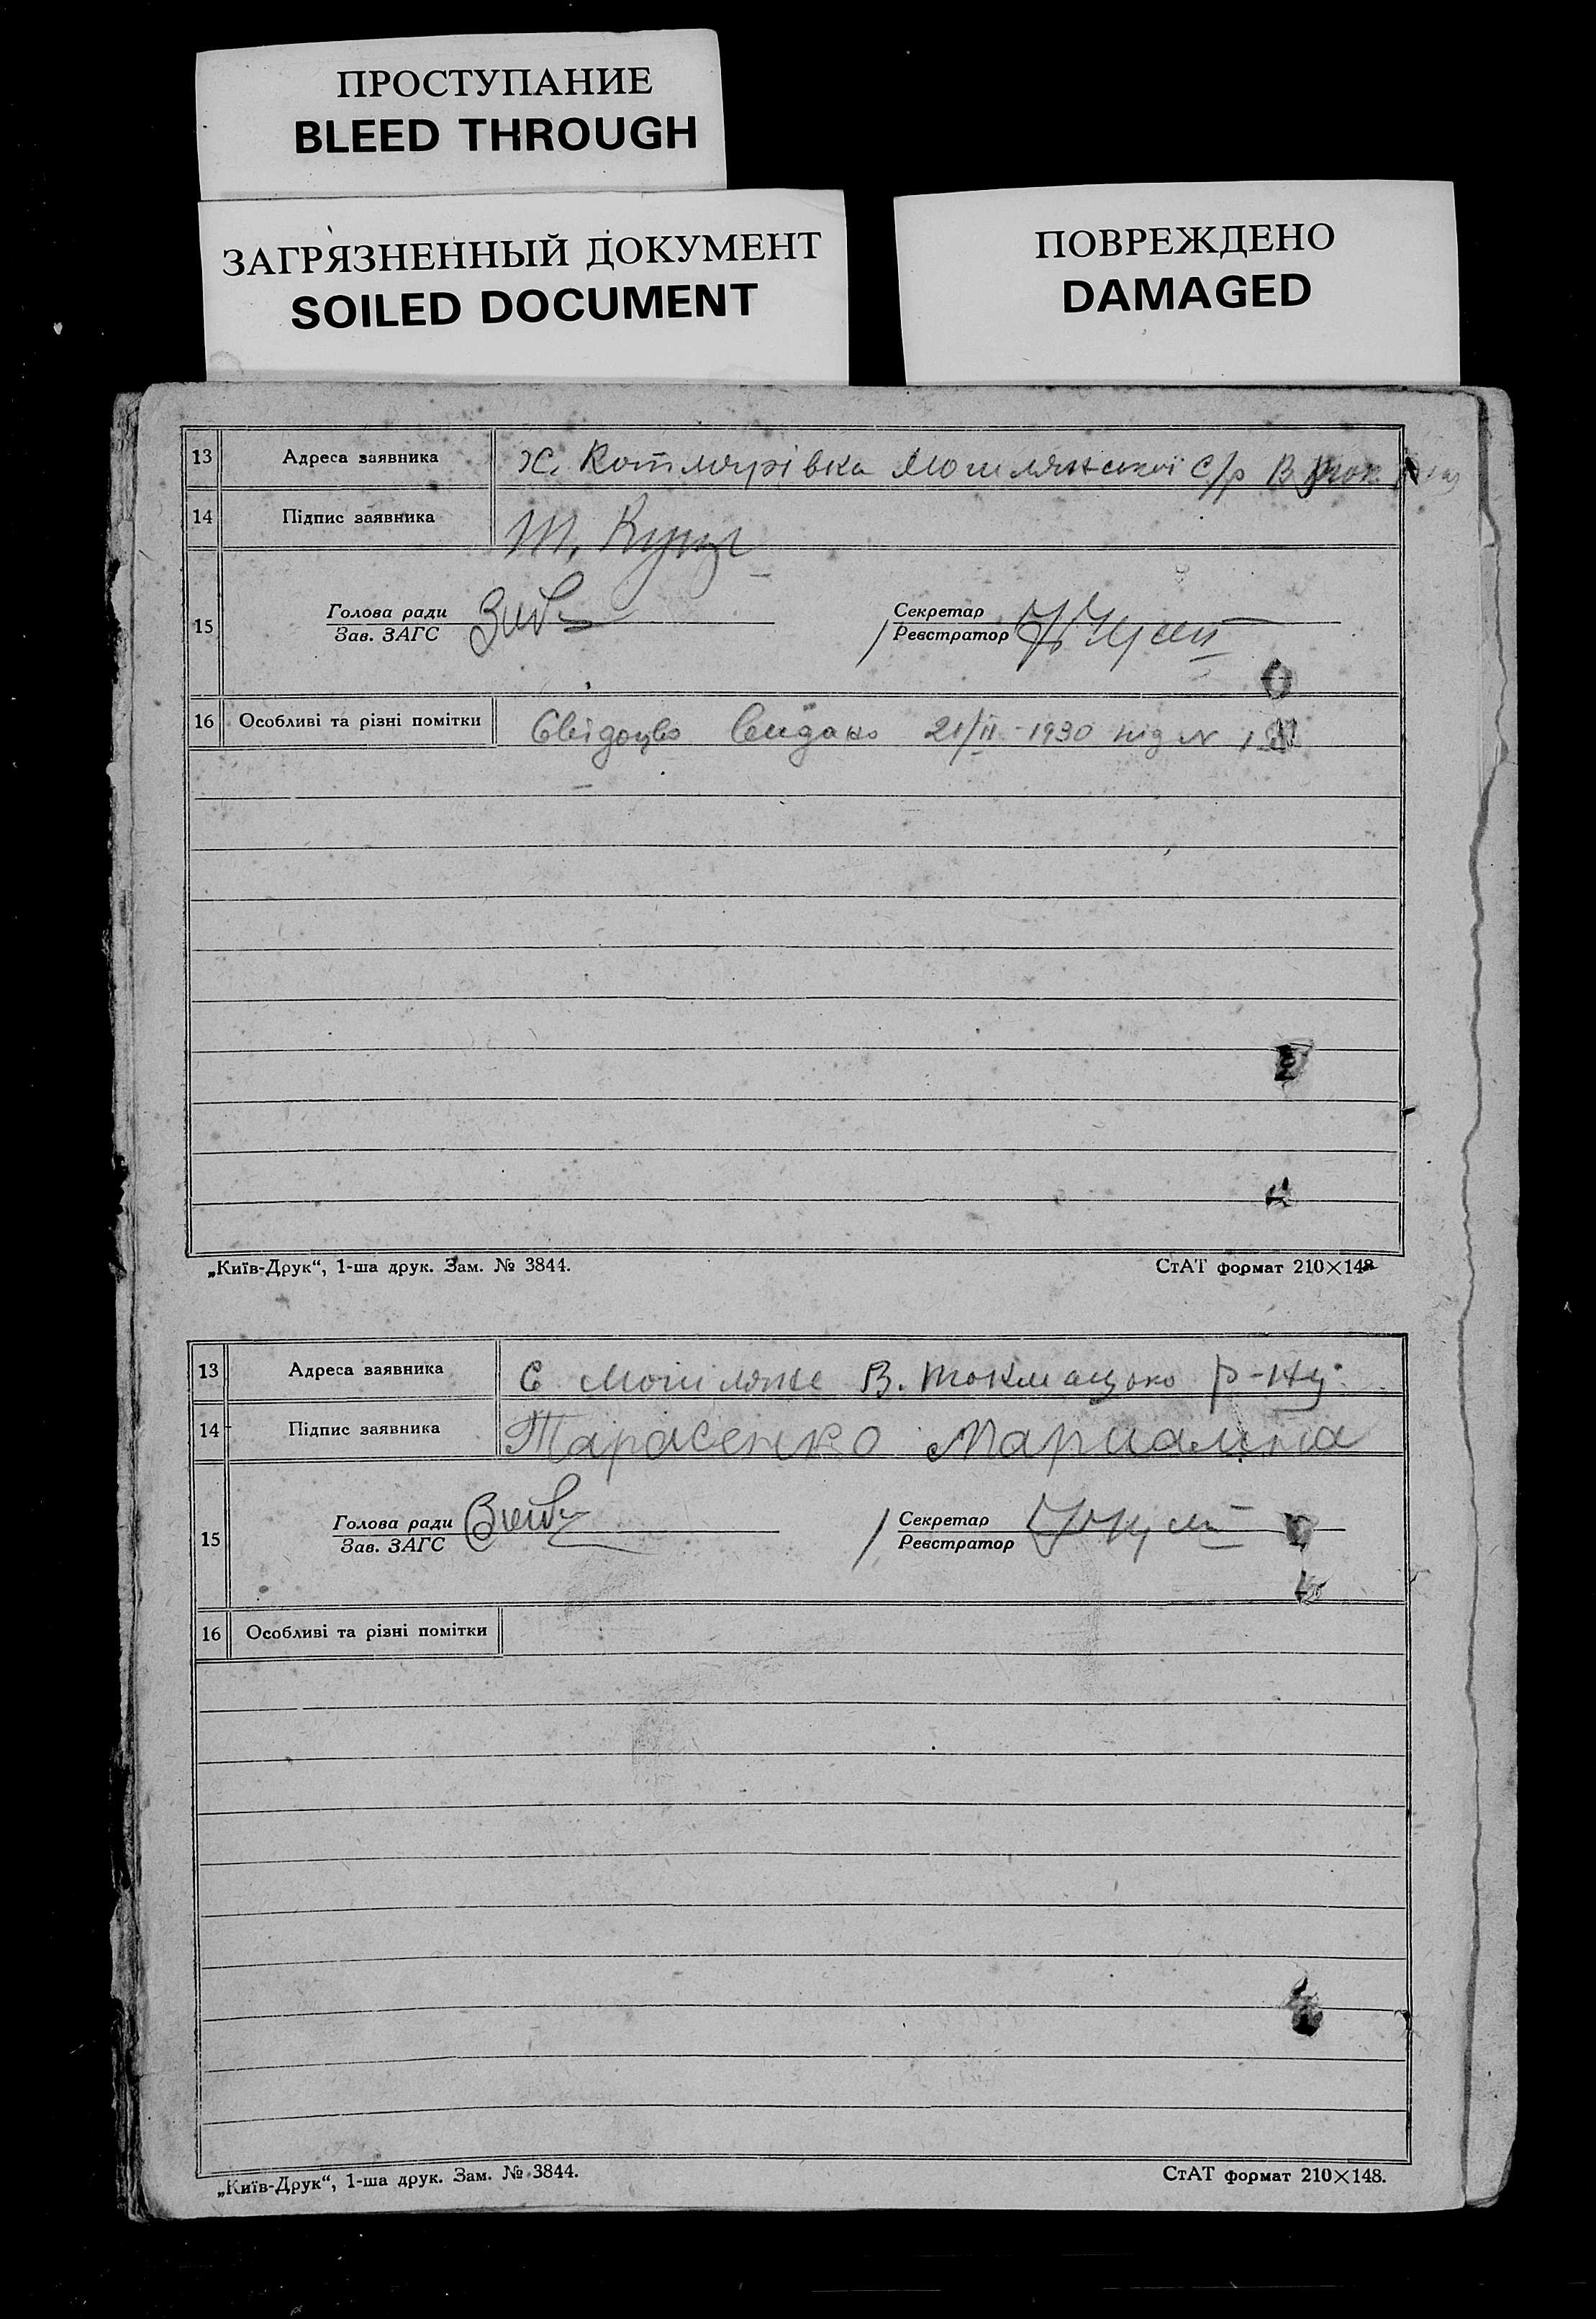 ПРОСТУПАНИЕ
BLEED THROUGH
ЗАГРЯЗНЕННЫЙ ДОКУМЕНТ
SOILED DOCUMENT
ПОВРЕЖДЕНО
DAMAGED
13 Адреса заявника х. Котлярівка с/р В Ток.
14 Підпис заявника Т.
15 Голова ради Секретар
Зав. ЗАГС Реєстратор
16 Особливі та різні помітки Свідоцво видано 21/II-1930 під №
„Київ-Друк“, 1-ша друк. Зам. № 3844. СтАТ формат 210×148
13 Адреса заявника С В. Токмацько р-ну
14 Підпис заявника Тарасенко
15 Голова ради Секретар
Зав. ЗАГС Реєстратор
16 Особливі та різні помітки
„Київ-Друк“, 1-ша друк. Зам. № 3844. СтАТ формат 210×148.